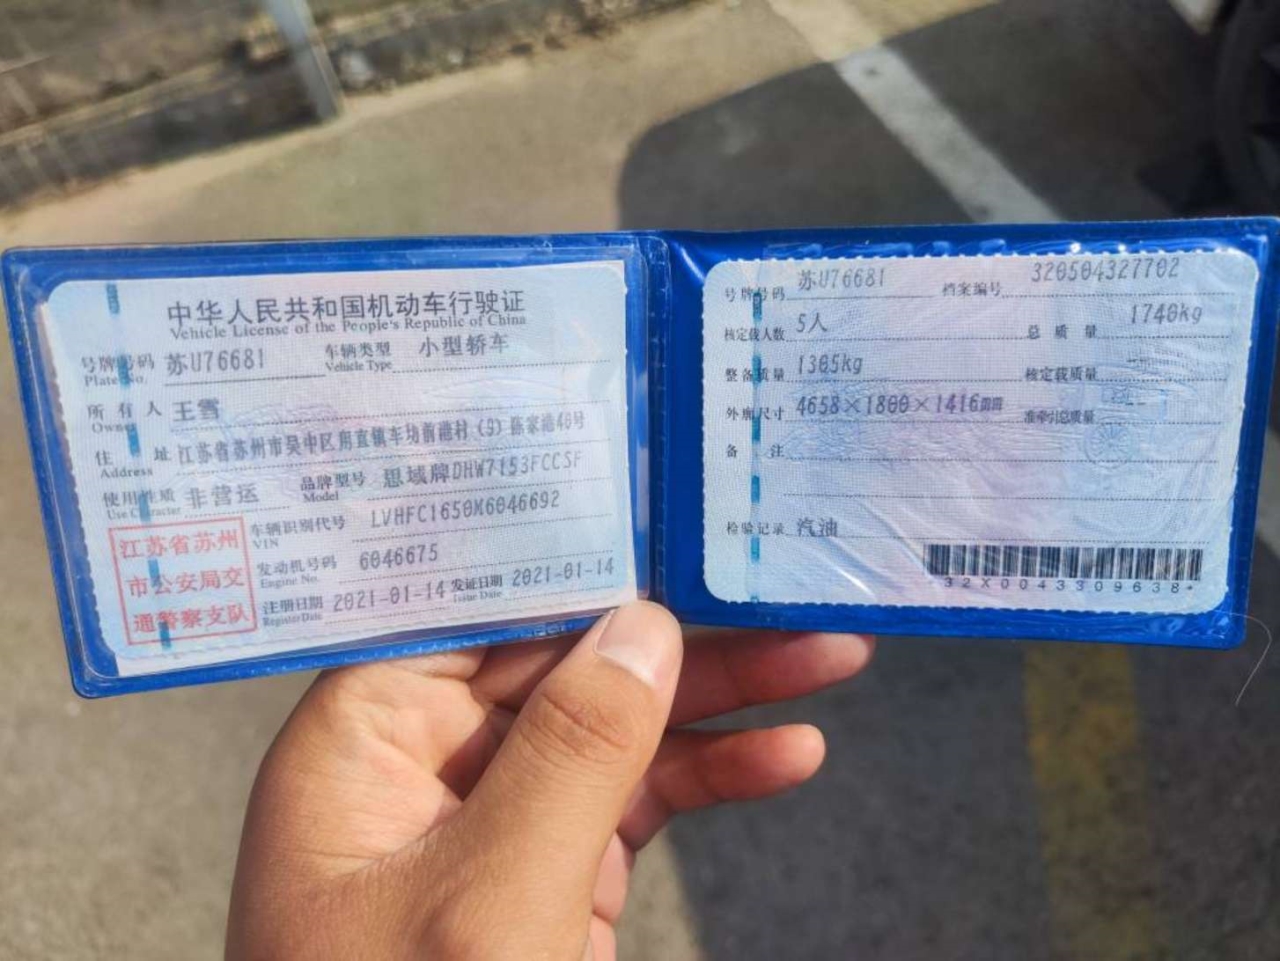 中华人民共和国机动车行驶证
Vehicle License of the People's Republic of China
号牌号码 苏U76681 车辆类型 小型轿车
Plate No. Vehicle Type
所有人 王雪
Owner
住址 江苏省苏州市吴中区甪直镇车坊前港村(9)陈家港46号
Address
使用性质 非营运 品牌型号 思域牌DHW7153FCCSF
Use Character Model
江苏省苏州
市公安局交
通警察支队
车辆识别代号 LVHFC1650M6046692
VIN
发动机号码 6046675
Engine No.
注册日期 2021-01-14 发证日期 2021-01-14
Register Date Issue Date
号牌号码 苏U76681 档案编号 320504327702
核定载人数 5人 总质量 1740kg
整备质量 1305kg 核定载质量
外廓尺寸 4658×1800×1416mm 准牵引总质量
备注
检验记录 汽油
32X0043309638